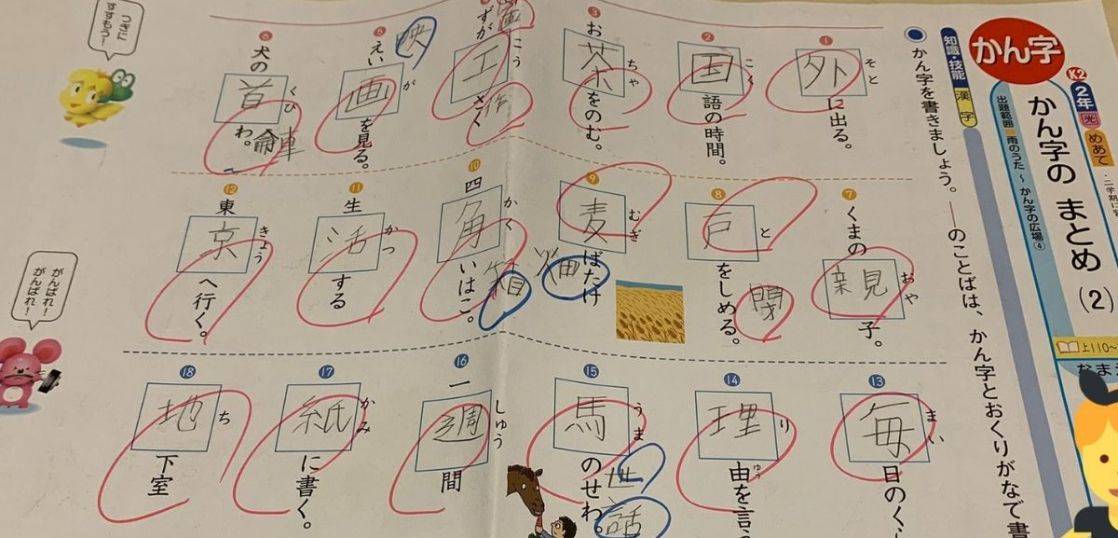 かん字
K2
2年
光
めあて
かん字の まとめ(2)
出題範囲
雨のうた ～ かん字の広場④
上110～
知識・技能
漢字
かん字を書きましょう。――のことばは、かん字とおくりがなで書
① 外に出る。
そと
② 国語の時間。
こく
③ お茶をのむ。
ちゃ
ずが工さく
こう
画
作
⑤ えい画を見る。
が
映
⑥ 犬の首わ。
くび
輪
車
⑦ くまの親子。
おや
⑧ 戸をしめる。
と
閉
⑨ 麦ばたけ
むぎ
畑
⑩ 四角いはこ。
かく
箱
⑪ 生活する
かつ
⑫ 東京へ行く。
きょう
⑬ 毎日のく
まい
⑭ 理由を言
り
ゆう
⑮ 馬のせわ。
うま
世話
⑯ 一週間
しゅう
⑰ 紙に書く。
かみ
⑱ 地下室
ち
つぎに
すすもう!
がんばれ!
がんばれ!